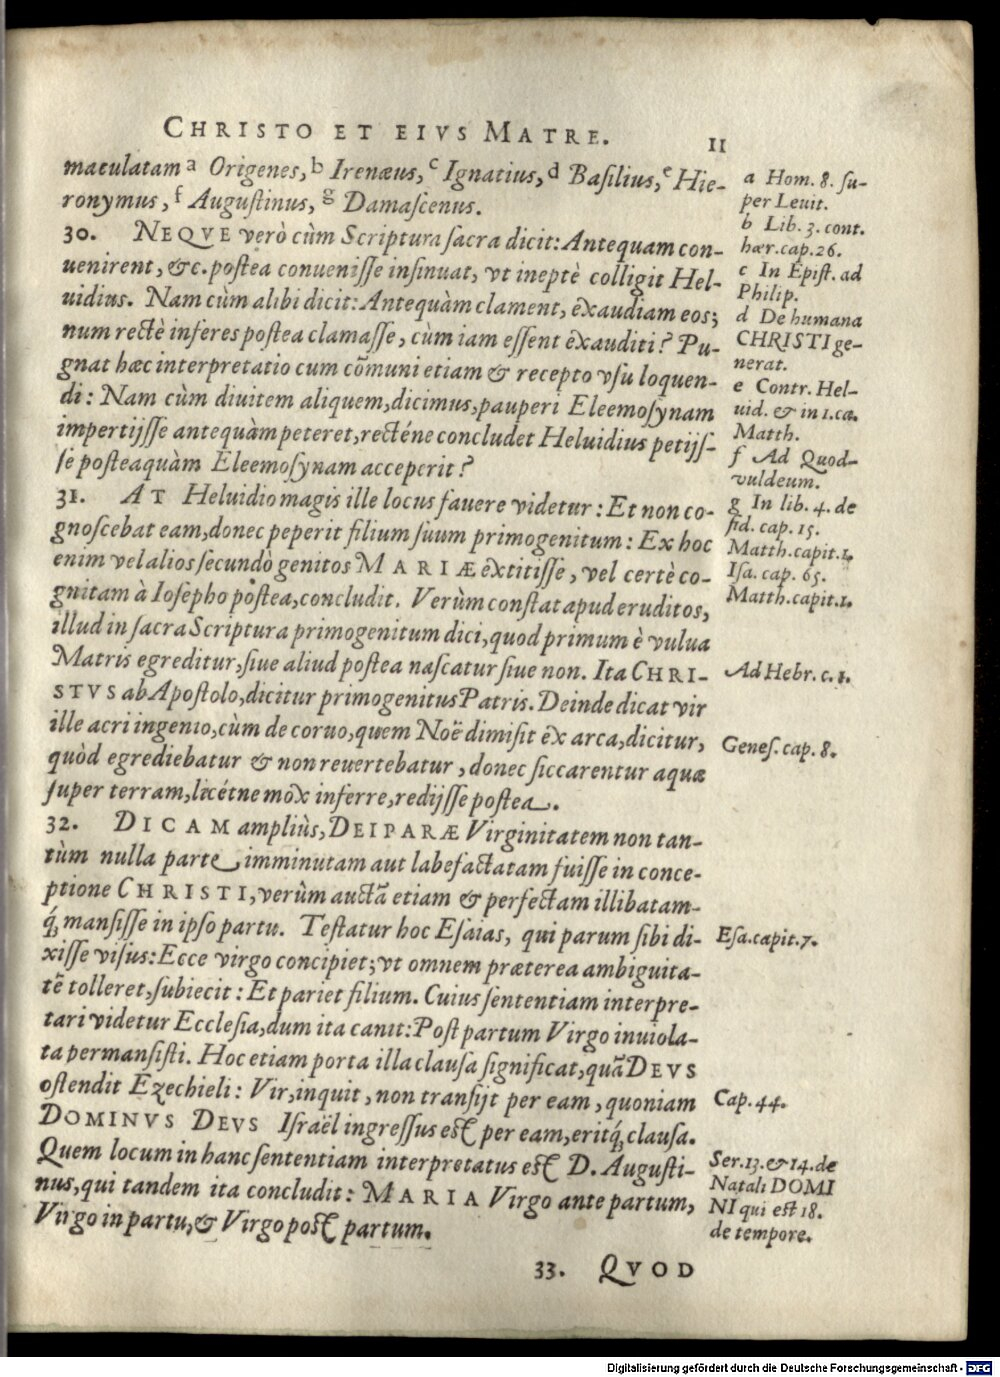 CHRISTO ET EIVS MATRE. 11
maculatam a Origenes, b Irenæus, c Ignatius, d Basilius, e Hie-
ronymus, f Augustinus, g Damascenus.
30. NEQVE verò cùm Scriptura sacra dicit: Antequam con-
uenirent, &c. postea conuenisse insinuat, vt ineptè colligit Hel-
uidius. Nam cùm alibi dicit: Antequàm clament, exaudiam eos;
num rectè inferes postea clamasse, cùm iam essent exauditi? Pu-
gnat hæc interpretatio cum cõmuni etiam & recepto vsu loquen-
di: Nam cùm diuitem aliquem, dicimus, pauperi Eleemosynam
impertijsse antequàm peteret, recténe concludet Heluidius petijs-
se posteaquàm Eleemosynam acceperit?
31. AT Heluidio magis ille locus fauere videtur: Et non co-
gnoscebat eam, donec peperit filium suum primogenitum: Ex hoc
enim vel alios secundò genitos MARIÆ extitisse, vel certè co-
gnitam à Iosepho postea, concludit. Verùm constat apud eruditos,
illud in sacra Scriptura primogenitum dici, quod primum è vulua
Matris egreditur, siue aliud postea nascatur siue non. Ita CHRI-
STVS ab Apostolo, dicitur primogenitus Patris. Deinde dicat vir
ille acri ingenio, cùm de coruo, quem Noë dimisit ex arca, dicitur,
quòd egrediebatur & non reuertebatur, donec siccarentur aquæ
super terram, licétne mox inferre, redijsse postea.
32. DICAM ampliùs, DEIPARÆ Virginitatem non tan-
tùm nulla parte imminutam aut labefactatam fuisse in conce-
ptione CHRISTI, verùm auctã etiam & perfectam illibatam-
q́; mansisse in ipso partu. Testatur hoc Esaias, qui parum sibi di-
xisse visus: Ecce virgo concipiet; vt omnem præterea ambiguita-
tẽ tolleret, subiecit: Et pariet filium. Cuius sententiam interpre-
tari videtur Ecclesia, dum ita canit: Post partum Virgo inuiola-
ta permansisti. Hoc etiam porta illa clausa significat, quã DEVS
ostendit Ezechieli: Vir, inquit, non transijt per eam, quoniam
DOMINVS DEVS Israël ingressus est per eam, eritq́; clausa.
Quem locum in hanc sententiam interpretatus est D. Augusti-
nus, qui tandem ita concludit: MARIA Virgo ante partum,
Virgo in partu, & Virgo post partum.
33. QVOD
a Hom. 8. su-
per Leuit.
b Lib. 3. cont.
hær. cap. 26.
c In Epist. ad
Philip.
d De humana
CHRISTI ge-
nerat.
e Contr. Hel-
uid. & in 1. ca.
Matth.
f Ad Quod-
vuldeum.
g In lib. 4. de
fid. cap. 15.
Matth. capit. 1.
Isa. cap. 65.
Matth. capit. 1.
Ad Hebr. c. 1.
Genes. cap. 8.
Esa. capit. 7.
Cap. 44.
Ser. 13. & 14. de
Natali DOMI
NI qui est 18.
de tempore.
Digitalisierung gefördert durch die Deutsche Forschungsgemeinschaft - DFG